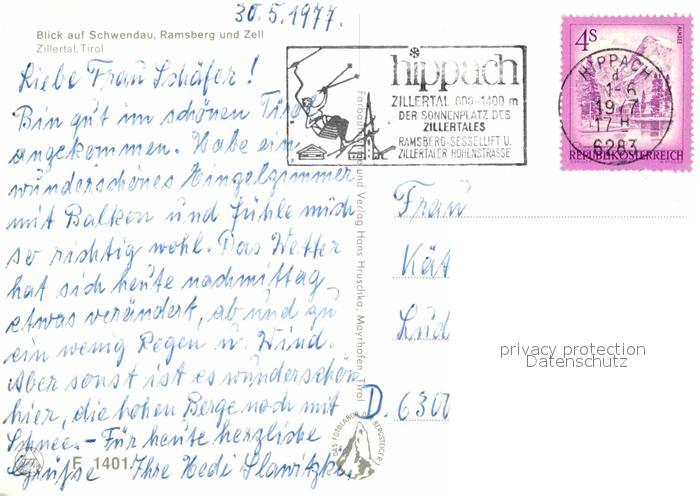 30.5.1977.
Blick auf Schwendau, Ramsberg und Zell
Zillertal, Tirol
Liebe Frau Schäfer!
Bin gut im schönen Tirol
angekommen. Habe ein
wunderschönes Einzelzimmer
mit Balkon und fühle mich
so richtig wohl. Das Wetter
hat sich heute nachmittag
etwas verändert, ab und zu
ein wenig Regen u. Wind.
Aber sonst ist es wunderschön
hier, die hohen Berge noch mit
Schnee. - Für heute herzliche
Grüße Ihre Hedi Slawitzki.
F 1401
und Verlag Hans Hruschka, Mayrhofen, Tirol
DAS FOTOLABOR BERGSTEIGER
hippach
ZILLERTAL 600-1400 m
DER SONNENPLATZ DES
ZILLERTALES
RAMSBERG-SESSELLIFT U.
ZILLERTALER HÖHENSTRASSE
4S
ALMSEE
REPUBLIK ÖSTERREICH
HIPPACH
d
1-6
1977
17 H
6283
Frau
Kät
Lud
D. 6300
privacy protection
Datenschutz